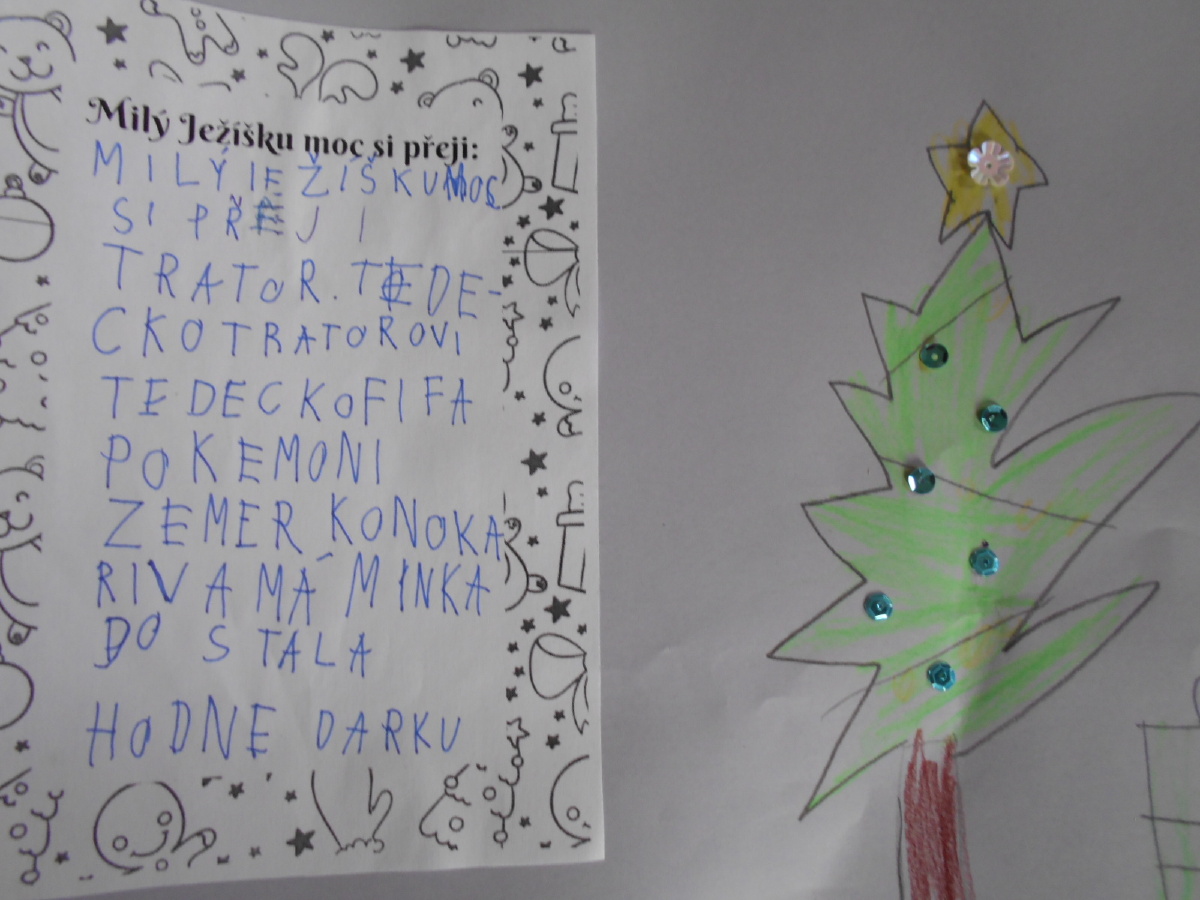 Milý Ježíšku moc si přeji:
MILÝ JEŽÍŠKU MOC
SI PŘEJI
TRATOR. TEDE-
CKOTRATOROVI
TEDECKOFIFA
POKEMONI
ZEMER KONOKA
RIV A MÁ MINKA
DO STALA
HODNE DARKU